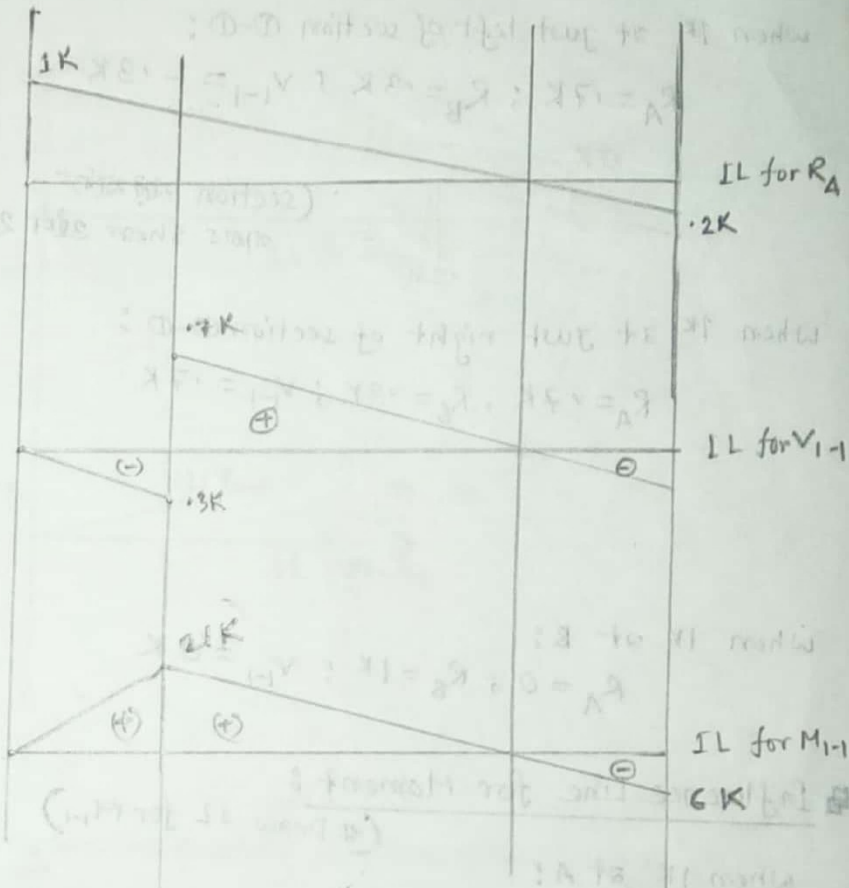 1K
IL for R_A
.2K
.7K
(+)
IL for V_1-1
(-)
(-)
.3K
(+)
(+)
IL for M_1-1
(-)
6 K